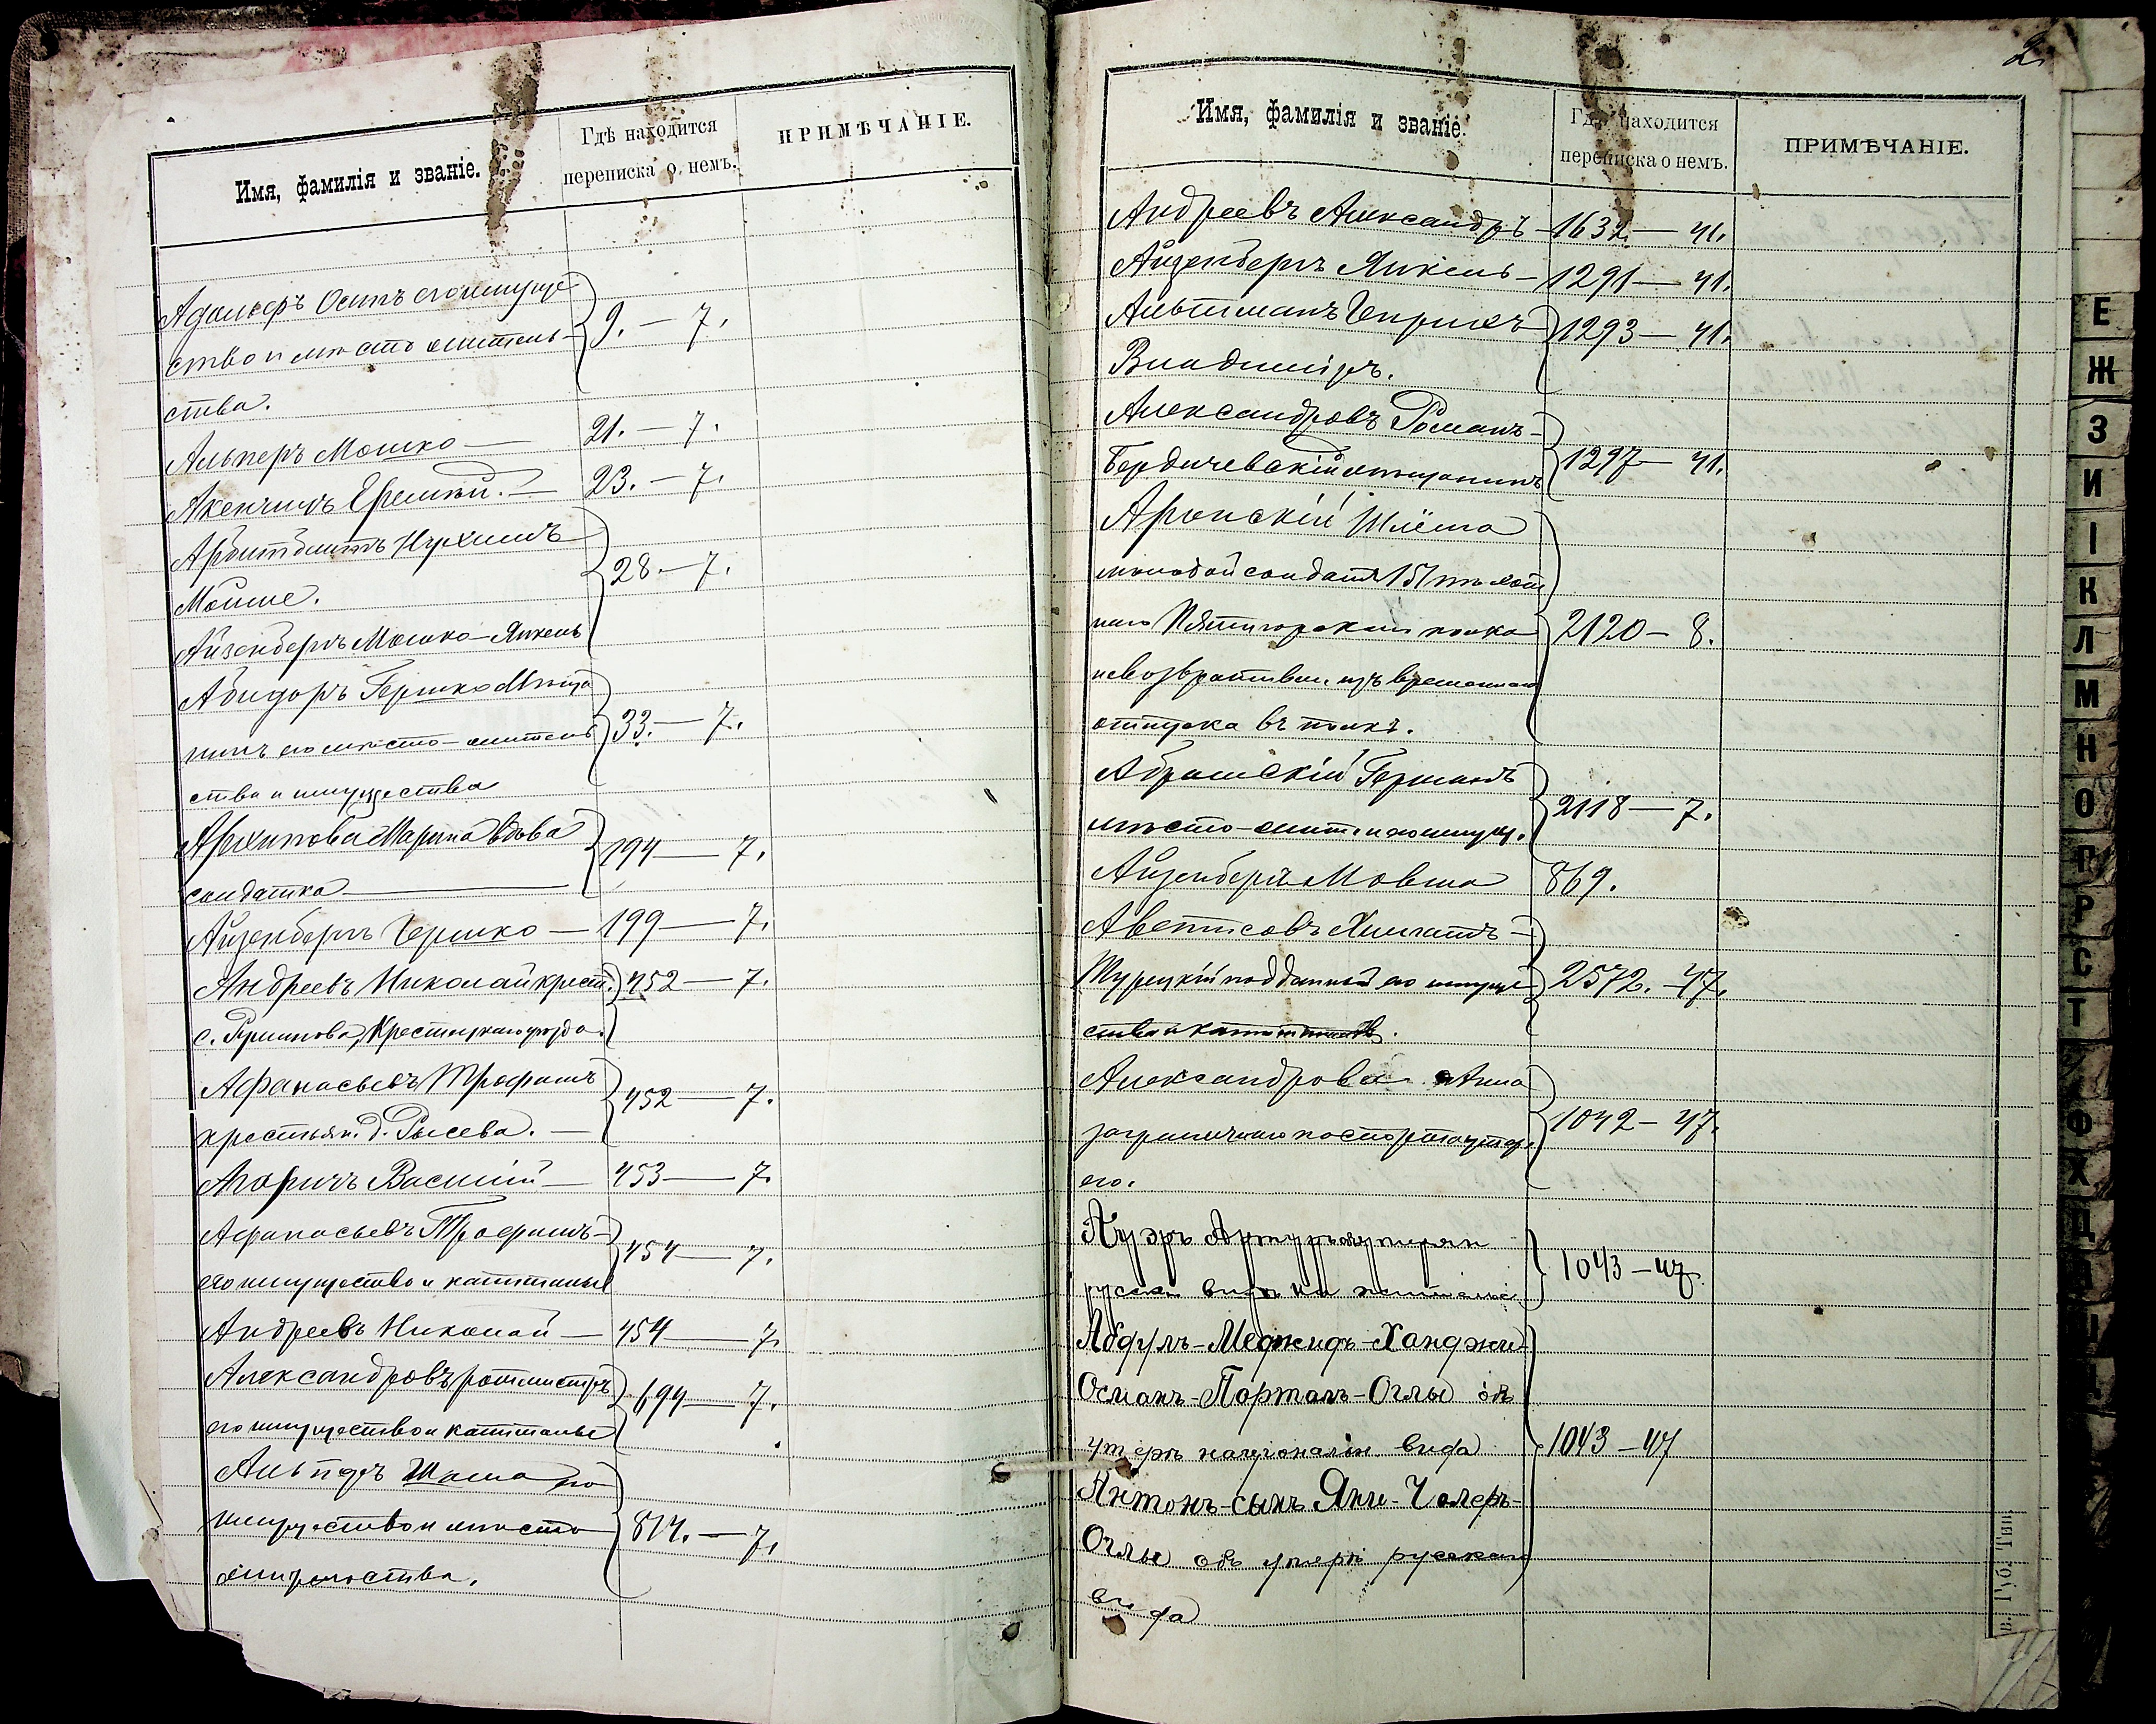 Имя, фамилія и званіе.
Гдѣ находится
переписка о немъ.
ПРИМѢЧАНІЕ.
Адольфъ Осипъ его имуще
ство и мѣсто житель-
ства.
9. — 7.
Альперъ Мошко — 21. — 7.
Акенчицъ Еремѣй. — 23. — 7.
Арбитблитъ Нухимъ
Мойше.
28. — 7.
Айзенбергъ Мошко-Янкель
Абидоръ Гершко Мѣща
нинъ его мѣсто-житель
ства и имущества
33. — 7.
Архипова Марина вдова
солдатка
194 — 7.
Айзенбергъ Гершко — 199 — 7.
Андреевъ Николай крест. 452 — 7.
с. Крестецкаго уѣзда.
Афанасьевъ Трофимъ
крестьян. д. Рысева. —
452 — 7.
Агоричъ Василій — 453 — 7.
Афанасьевъ Трофимъ —
его имущество и капиталы
454 — 7.
Андреевъ Николай — 454 — 7.
Александровъ ротмистръ
его имущество и капиталы
694 — 7.
Альпдръ Шлема его
имущество и мѣсто
жительства.
814. — 7.
2.
Имя, фамилія и званіе.
Гдѣ находится
переписка о немъ.
ПРИМѢЧАНІЕ.
Андреевъ Александръ — 1632. — 41.
Айзенбергъ Янкель — 1291 — 41.
Альтманъ Генрихъ
Владиміръ.
1293 — 41.
Александровъ Романъ —
Бердичевскій мѣщанинъ
1297 — 41.
Аронскій Шлёма
молодой солдатъ 151 пѣхот
наго Пятигорскаго полка
невозвративш. изъ временнаго
отпуска въ полкъ.
2120 — 8.
Абрамскій Германъ
мѣсто-жит. и его имущ.
2118 — 7.
Айзенбергъ Мовша 869.
Аветисовъ —
Турецкій подданный его имуще
ства и капиталовъ.
2572. — 47.
Александрова Анна
заграничнаго паспорта утер.
его.
1042 — 47.
Ауэръ Артуръ утерян
русск. видъ на жительс.
1043 — 47.
Абдулъ-Меджидъ-Ханджи
Османъ-Порталъ-Оглы объ
утерѣ національн. вида
1043 — 47
Антонъ-сынъ Яни-Чолеръ-
Оглы объ утерѣ русскаго
вида
в. Губ. Тип.
Е
Ж
З
И
І
К
Л
М
Н
О
П
Р
С
Т
Ф
Х
Ц